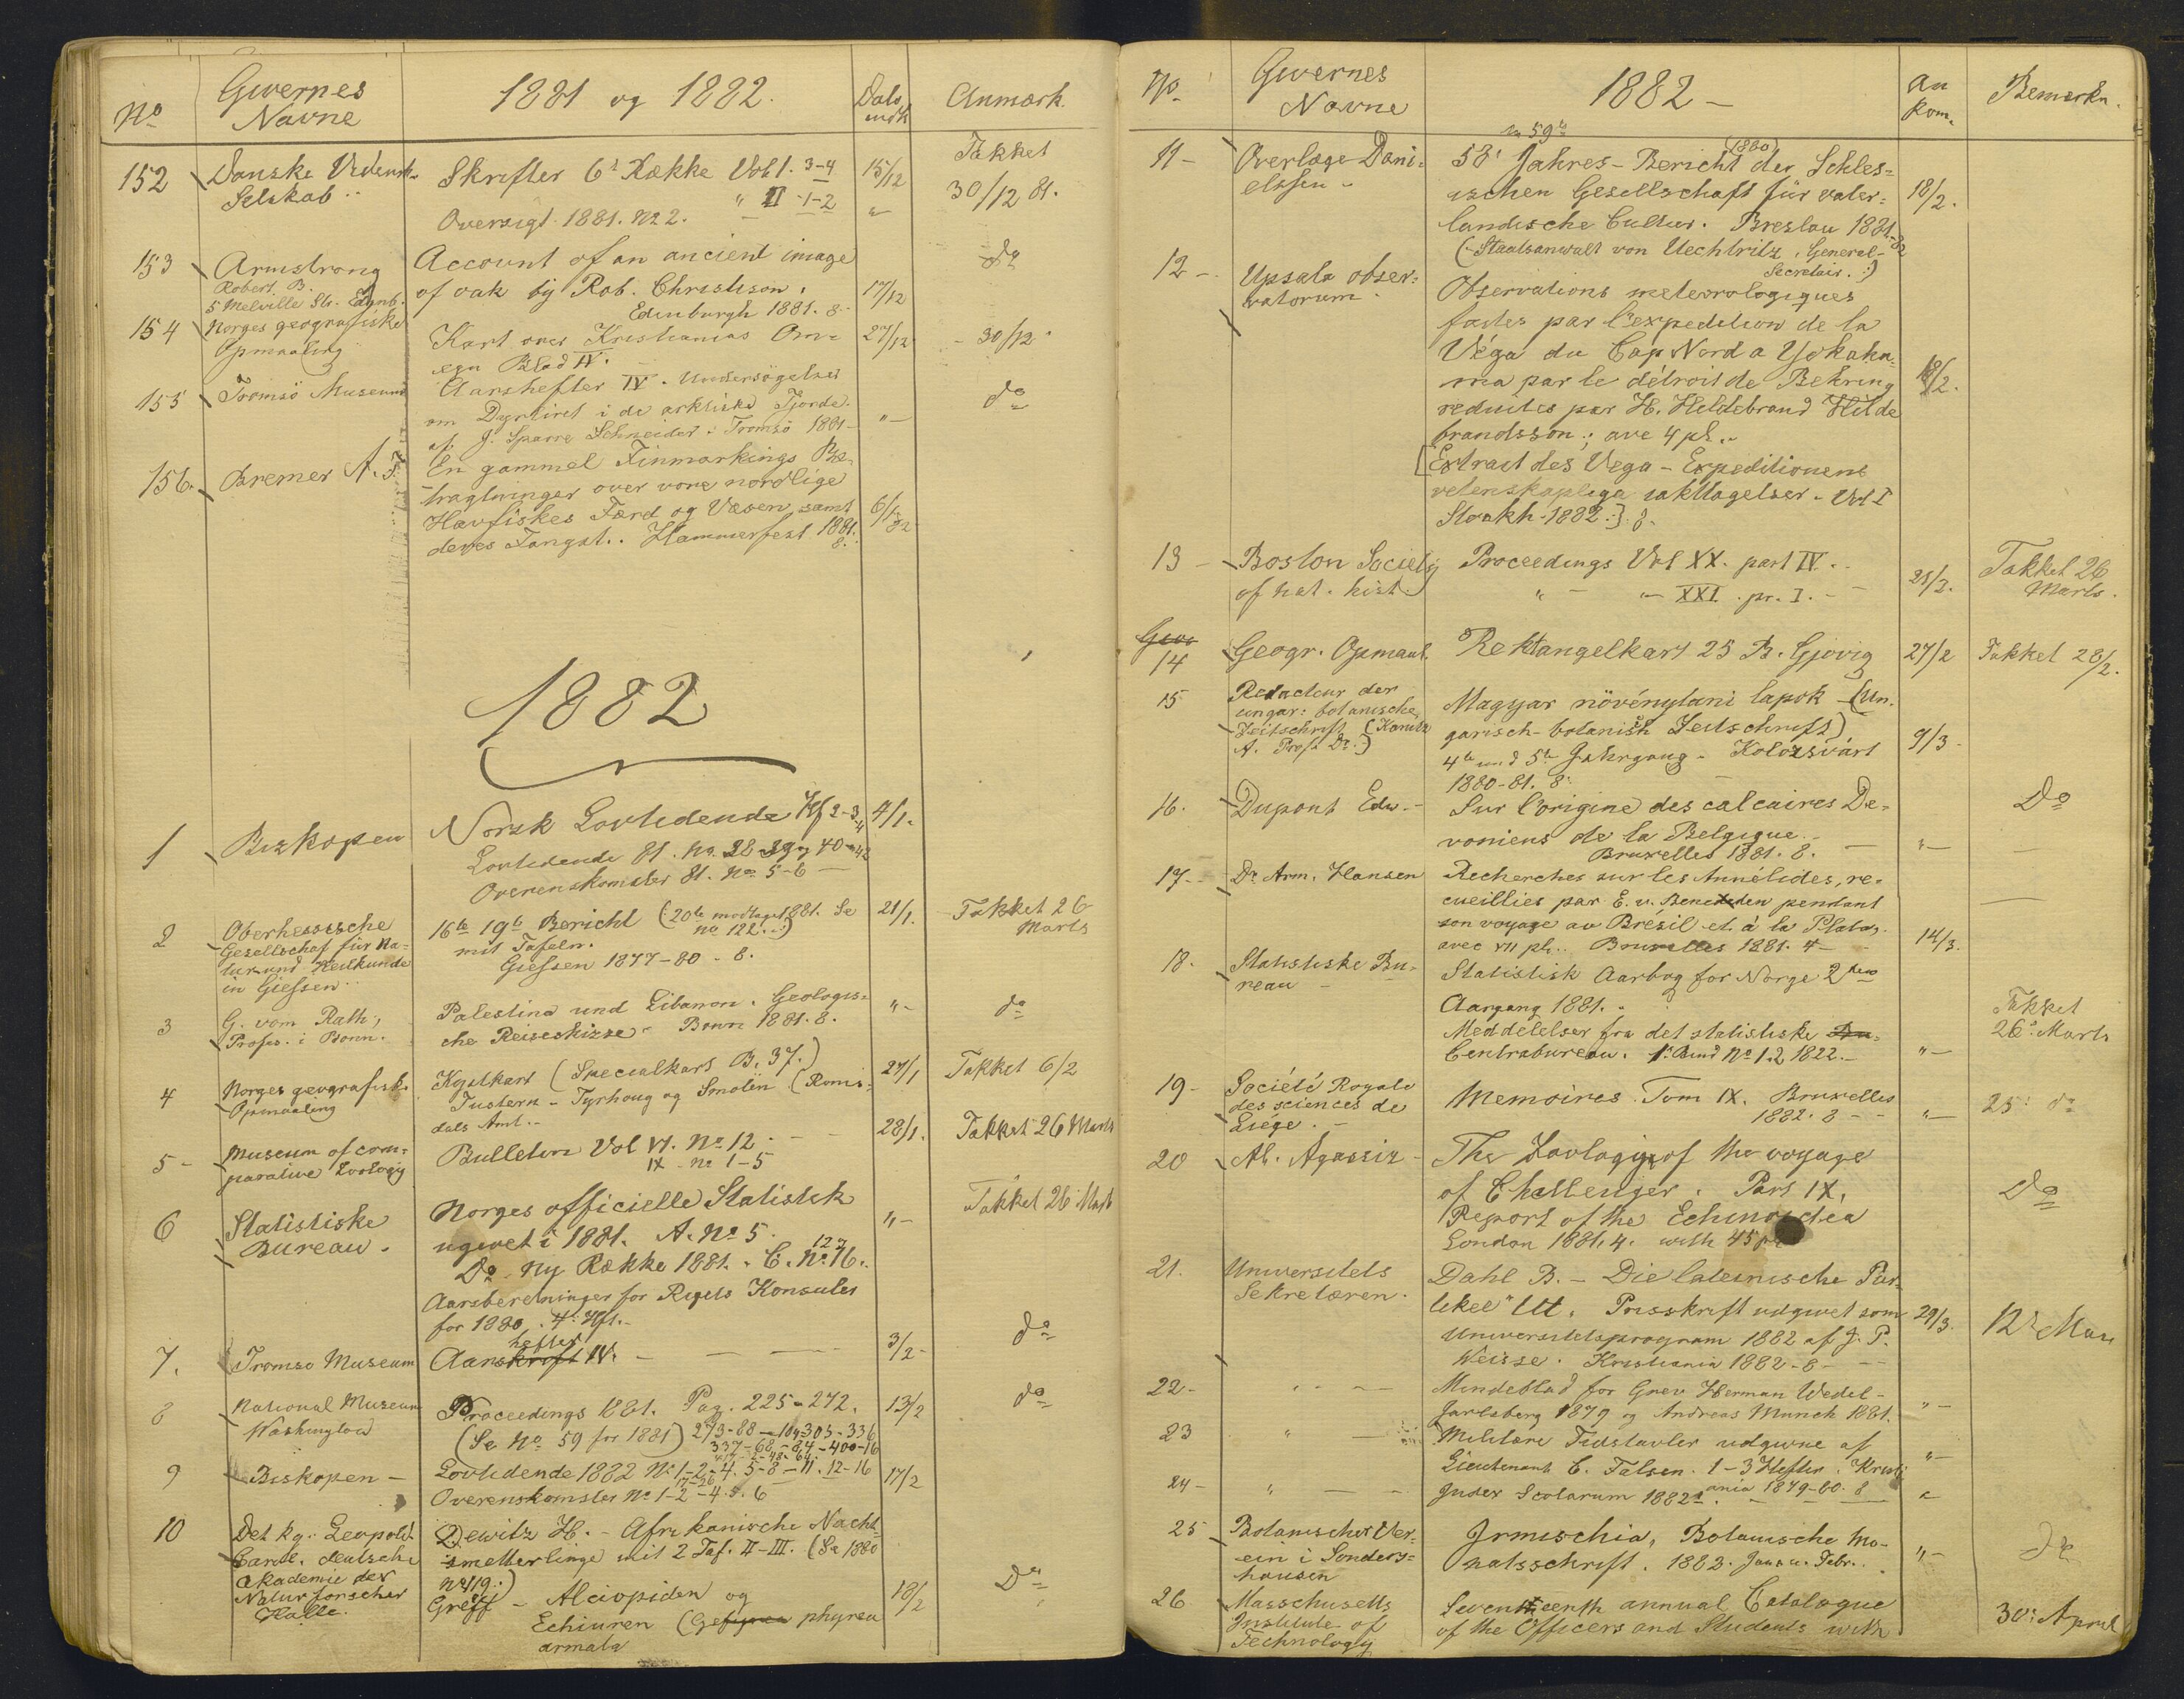 No Givernes Navne 1881 og 1882. Dato indk Anmærk.
152 Danske Vidensk. Selskab
Skrifter 6t Række Vol I. 3-4 15/12 Takket
" II -1-2 30/12 81.
Oversigt 1881. No 2. "
153 Armstrong
Robert B.
5 Melville Str. Edynb.
Account of an ancient image do
of oak by Rob. Christison, 17/12
Edinburgh 1881. 8.
154 Norges geografiske
Opmaaling
Kart over Kristianias Om- 27/12 - 30/12.
egn Blad IV.
155 Tromsö Museum
Aarshefter IV. Undersögelser do
om Dyrlivet i de arktiske Fjorde
af J. Sparre Schneider. Tromsö 1881 - "
156. Bremer A. F.
En gammel Finmarkings Be-
tragtninger over vore nordlige
Havfiskes Færd og Væsen, samt 6/1 82
deres Fangst. Hammerfest 1881.
8.
1882
1 Biskopen
Norsk Lovtidende Hf 2-3-4 4/1.
Lovtidende 81. No. 38-39 og 40-42
Overenskomster 81. No 5-6 -
2 Oberhessische
Gesellschaf für Na-
tur und Heilkunde
in Giessen
16te 19te Bericht (20te modtaget 1881. Se 21/1. Takket 26
no 122.) Marts
mit Tafeln.
Giessen 1877-80. 8.
3 G. vom Rath,
Profes. i Bonn.
Palestina und Libanon. Geologis- " do
che Reiseskizze - Bonn 1881. 8.
4 Norges geografisk
Opmaaling
Kystkart (Specialkart B. 37.) 27/1 Takket 6/2
Tustern - Tyrhoug og Smolen (Roms-
dals Amt. -
5 - Museum of com-
parative Zoologig
Bulletin Vol VI. No 12. - - 28/1. Takket 26 Marts
IX - no 1-5
6 Statistiske
Bureau.
Norges officielle Statistik " Takket 26 Marts
ugivet i 1881. A. No 5.
Do. Ny Række 1881. C. No 16.
Aarsberetninger for Rigets Konsuler
for 1880. 4: Hft. -
7. Tromsö Museum
hefter
Aarsskrift IV. - - 3/2 - do
8 National Museum
Washington
Proceedings 1881. Pag. 225-272. 13/2 do
(Se No 59 for 1881) 273-88 - 304-305-336
337-68-84-400-16
417-48-64
9 Biskopen -
Lovtidende 1882 No 1-2-4. 5-8-11. 12-16 17/2
17-26
Overenskomster No 1-2-4. 5. 6
10 Det kg. Leopold.
Carol. deutsche
Akademie der
Naturforscher
Halle.
Dewitz H. - Afrikanische Nacht-
smetterlinge mit 2 Taf. II-III. (Se 1880
No 119.)
Greff - Alciopiden og 18/2 Do
Echiuren (Gefyrea phyrea
armata
No Givernes Navne 1882 - Ankom. Bemerkn.
11 - Overlæge Dani-
elssen -
en 59te
58t Jahres-Bericht (1880) der Schles-
ischen Gesellschaft für vater- 18/2.
landische Cultur. Breslau 1881-82
(Staatsanwalt von Uechtritz, General-
Secretair.)
12 - Upsala obser-
vatorium.
Observations meteorologiques
faites par l'expedition de la
Véga du Cap Nord a Yokaha-
ma par le détroit de Behring 18/2.
reduites par H. Hildebrand Hilde
brandsson; ave 4 pl.
[Extrait des Vega-Expeditionens
vetenskapliga iakttagelser - Vol I
Stockh. 1882.] 8.
13 - Boston Society
of nat. hist.
Proceedings Vol XX. part IV. Takket 26
" - " XXI. pr. I. - 21/2. Marts.
Geos
14 Geogr. Opmaal.
Rektangelkart 25 B. Gjøvig 27/2 Takket 28/2.
15 Redacteur der
ungar. botanische
Zeitschrift (Kanitz
A. Prof. Dr.)
Magyar növénytani lapok (Un-
garisch-botanish Zeitschrift) 9/3 -
4te und 5te Jahrgang - Kolozsvárt
1880-81. 8.
16. Dupont Edw. -
Sur l'origine des calcaires De- Do
voniens de la Belgique.
Bruxelles 1881. 8. - " -
17 - Dr Arm. Hansen
Recherches sur les Annélides, re-
cueillies par E. v. Beneden pendant -
son voyage au Brésil et à la Plata.
avec VII pl. Bruxelles 1881. 4 - 14/3.
18. Statistiske Bu-
reau -
Statistisk Aarbog for Norge 2den
Aargang 1881. Takket
Meddelelser fra det statistiske Bu- 26: Marts
Centrabureau. 1: Bind No 1. 2 1822. - "
19 - Société Royale
des sciences de
Liége. -
Memoires. Tom IX. Bruxelles
1882. 8 - - " 25: do
20 Al. Agassiz -
The Zoologi of the voyage
of Challenger. Part IX, Do
Report of the Echinoidea
London 1881. 4. with 45 pl
21. Universitets
Sekretæren.
Dahl B. - Die lateinische Par-
tikel "Ut". Prisskrift udgivet som 29/3. 12: Mai
Universitetsprogram 1882 af J. P.
Weisse. Kristiania 1882 - 8 - - -
22 - " - -
Mindeblad for Grev Herman Wedel-
Jarlsberg 1879 og Andreas Munch 1881. "
23 " -
Militære Tidstavler udgivne af
Lieutenant C. Falsen. 1-3 Hefter. Kristi- "
ania 1879-80. 8
24 - " - -
Index Scolarum 1882. - - "
25 Botanischer Ver-
ein i Sonders-
hausen
Irmischia, Botanische Mo-
natsschrift. 1882. Jan. u. Febr. " do
26 Masschusetts
Institute of
Technology
Seventeenth annual Catalogue 30: April
of the Officers and Students with